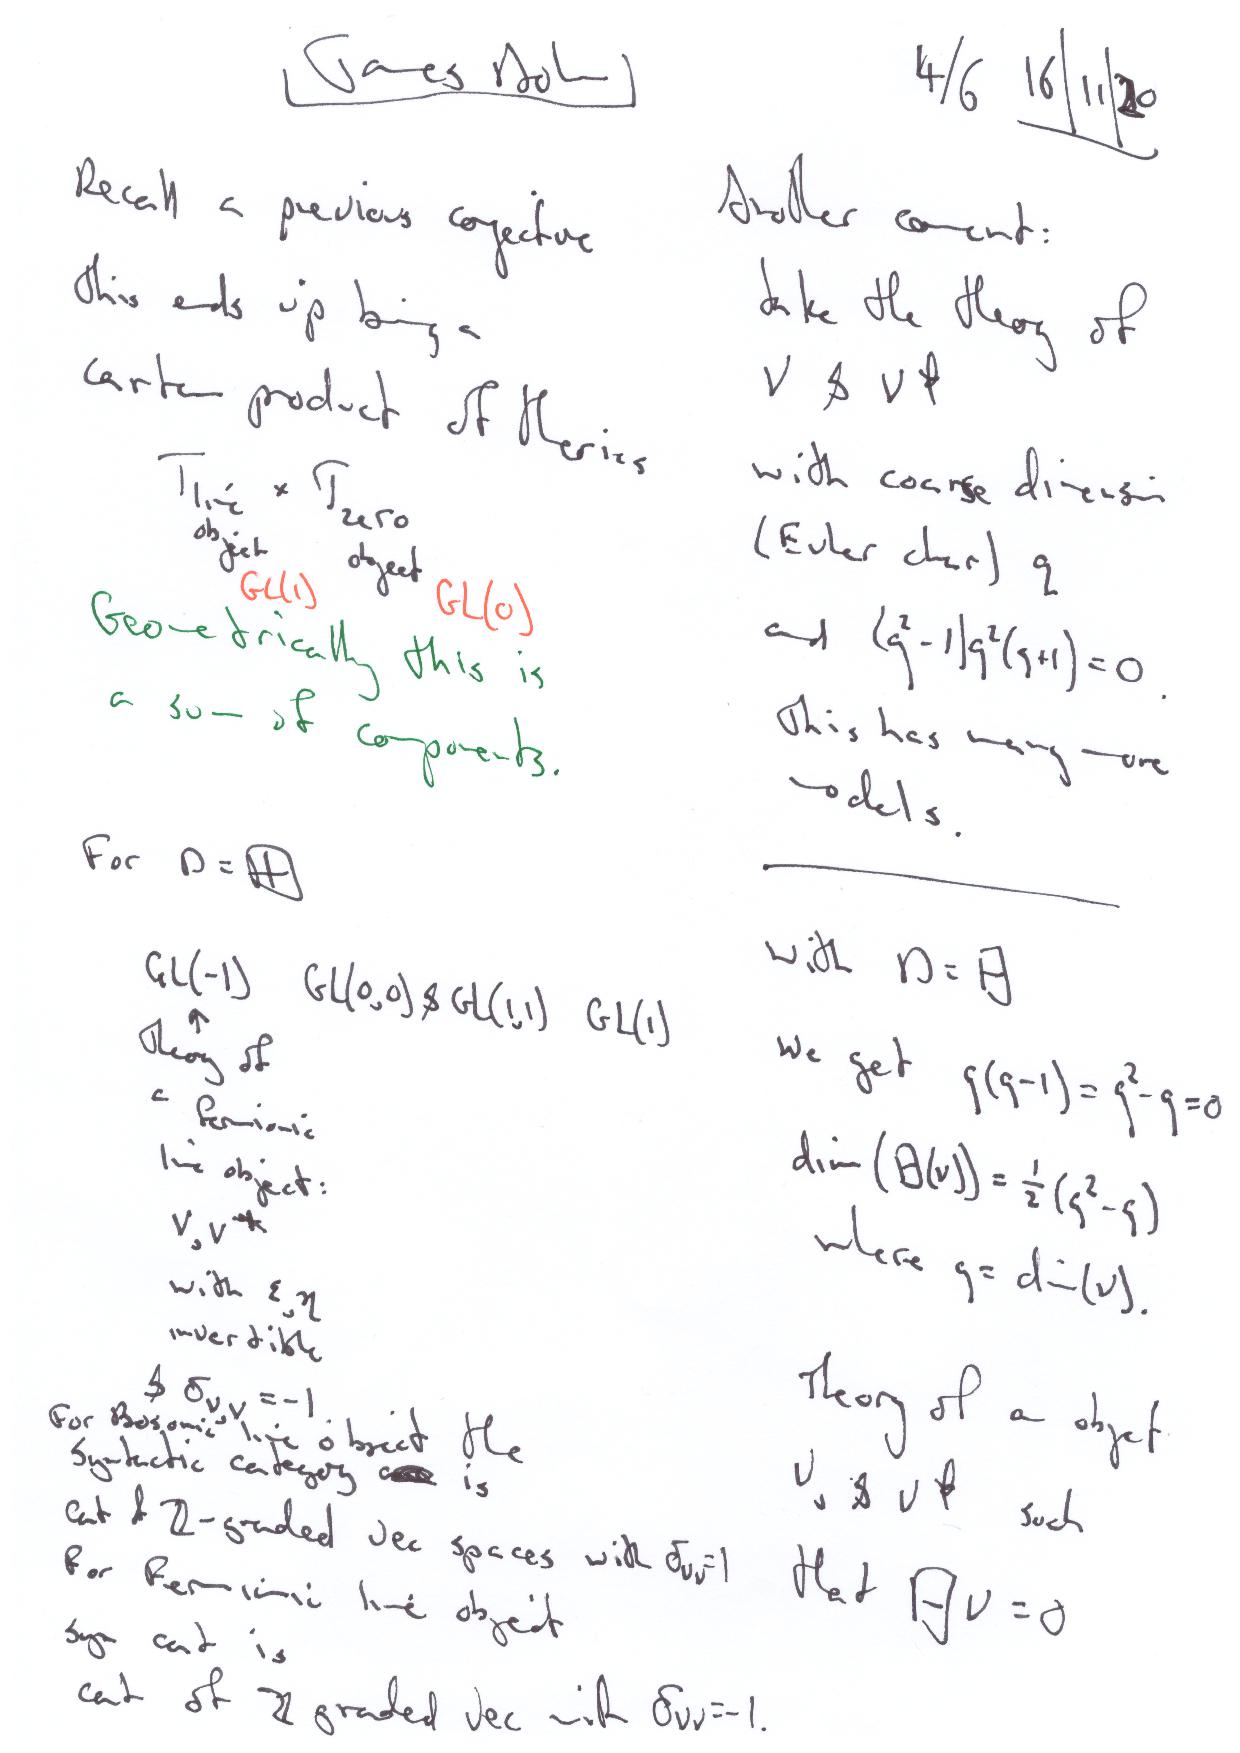 James Dolan
4/6 16/11/20
Recall a previous conjecture
this ends up being a
carte product of theories
T line object × T zero object
GL(1) GL(0)
Geometrically this is
a sum of components.
For D = ⊞
GL(-1) GL(0,0) & GL(1,1) GL(1)
↑
theory of
a fermionic
line object:
V, V*
with ε, η
invertible
& σ_{V,V} = -1
For Bosonic line object the
syntactic category is
cat of ℤ-graded vec spaces with σ_{VV}=1
For Fermionic line object
syn cat is
cat of ℤ graded vec with σ_{VV}=-1.
Another comment:
take the theory of
V & V*
with coarse dimension
(Euler char) q
and (q²-1)q²(q+1)=0.
This has many more
models.
with D = 日
We get q(q-1) = q²-q = 0
dim(日(V)) = ½(q²-q)
where q = dim(V).
Theory of a object
V, & V* such
that 日V = 0